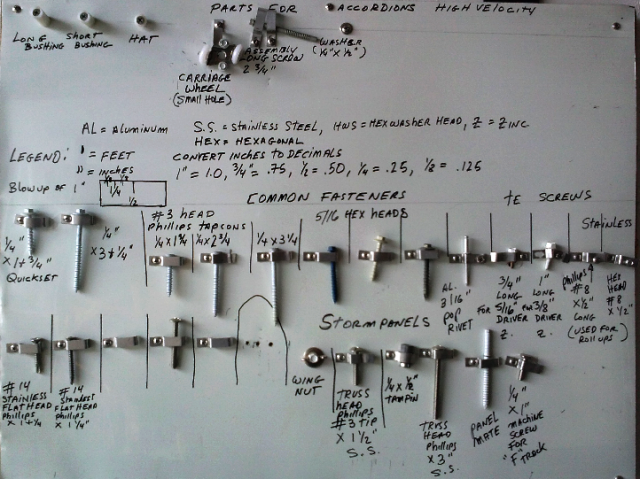 PARTS FOR ACCORDIONS HIGH VELOCITY
LONG BUSHING
SHORT BUSHING
HAT
CARRIAGE
WHEEL
(SMALL HOLE)
ASSEMBLY
LONG SCREW
2 3/4"
WASHER
(1/4" X 1/2")
AL = ALUMINUM S.S. = STAINLESS STEEL, HWS = HEX WASHER HEAD, Z = ZINC
HEX = HEXAGONAL
LEGEND: ' = FEET CONVERT INCHES TO DECIMALS
" = INCHES 1" = 1.0, 3/4" = .75, 1/2 = .50, 1/4 = .25, 1/8 = .125
BLOWUP OF 1"
1/8 1/8
1/4
1/2
COMMON FASTENERS
SCREWS
1/4"
X 1 + 3/4"
QUICKSET
1/4"
X 3 + 1/4"
#3 HEAD
PHILLIPS TAPCONS
1/4 X 1 3/4
1/4 X 2 3/4
1/4 X 3 1/4
5/16 HEX HEADS
AL.
3/16"
POP
RIVET
3/4"
LONG
FOR 5/16"
DRIVER
Z.
1"
LONG
FOR 3/8"
DRIVER
Z.
STAINLESS
PHILLIPS
#8
X 1/2"
LONG
HEX
HEAD
#8
X 1/2"
(USED FOR
ROLLUPS)
STORMPANELS
#14
STAINLESS
FLATHEAD
PHILLIPS
X 1 + 1/4
#14
FLATHEAD
PHILLIPS
X 1 1/4"
WING
NUT
TRUSS
HEAD
PHILLIPS
#3 TIP
X 1 1/2"
S.S.
1/4 X 1/2"
TAMPIN
TRUSS
HEAD
PHILLIPS
X 3"
S.S.
PANEL
MATE
1/4"
X 1"
MACHINE
SCREW
FOR
"F" TRACK